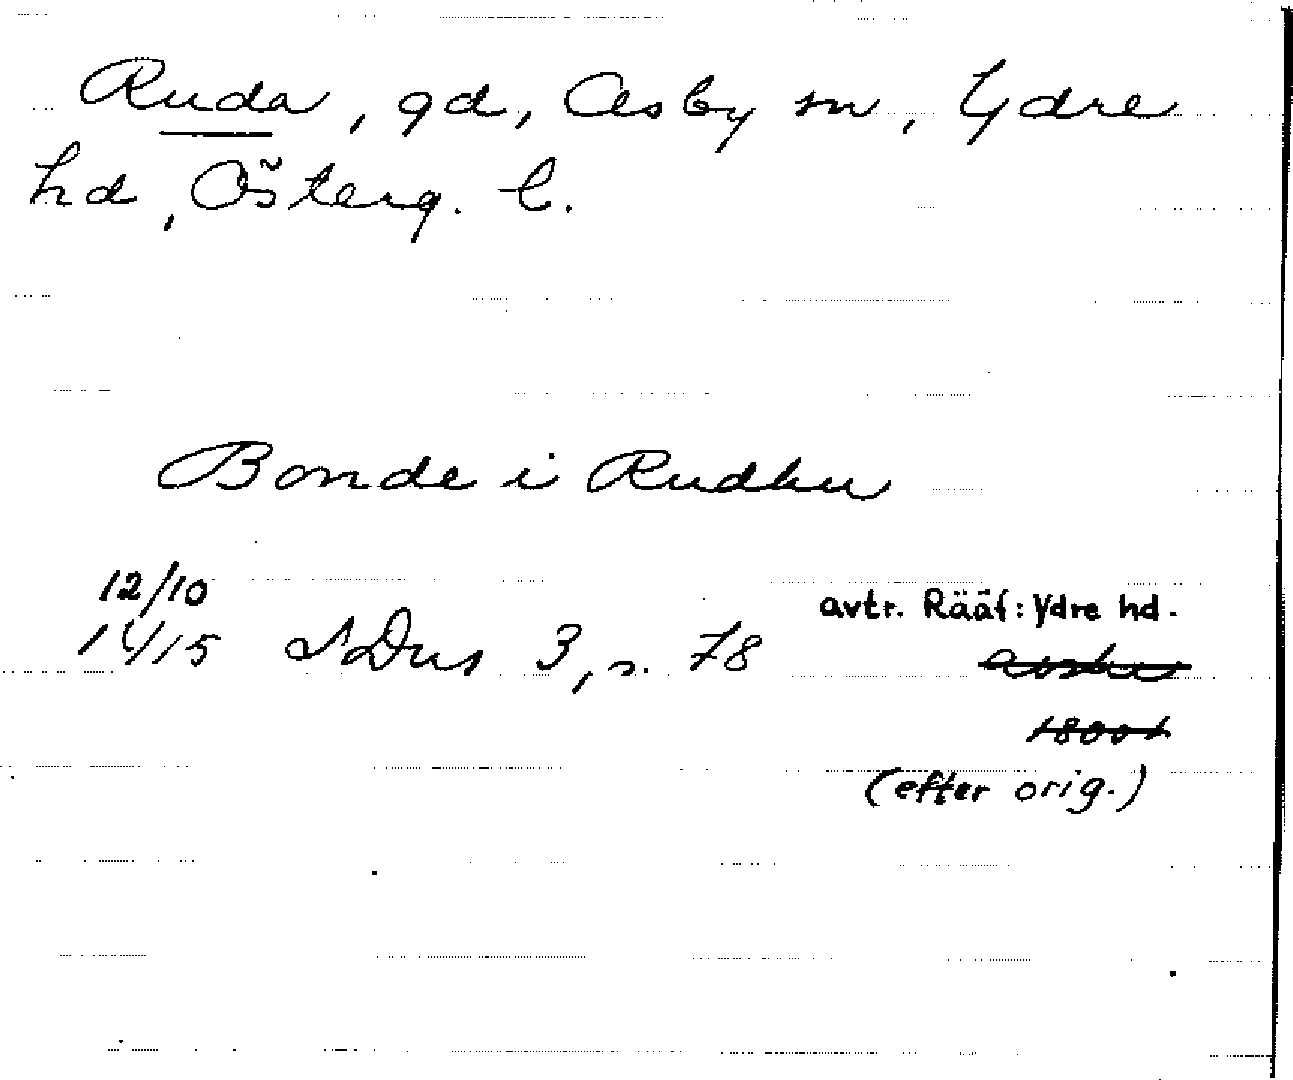 Ruda, gd, Asby sn, Ydre
hd, Österg. l.
Bonde i Rudhu
12/10
1415 SDns 3, s. 78
avtr. Rääf: Ydre hd.
avskr
1800t
(efter orig.)